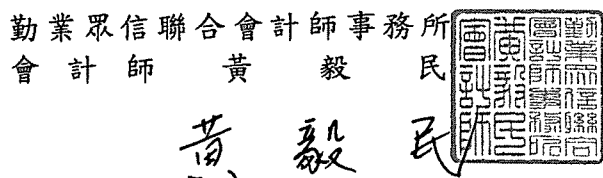 勤業眾信聯合會計師事務所
會計師 黃毅民
黃毅民
勤業眾信聯合
會計師事務所
黃毅民
會計師